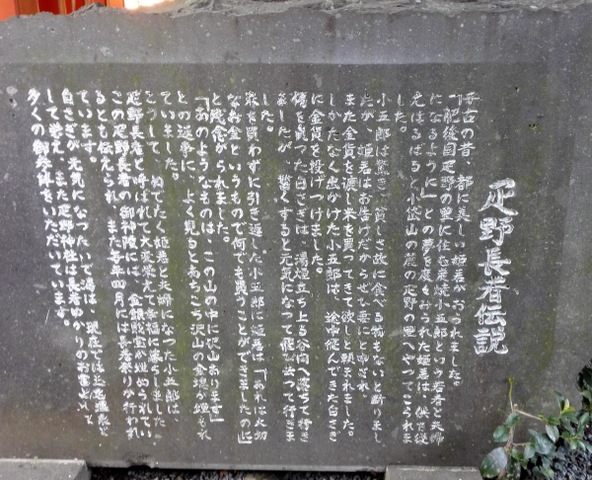 疋野長者伝説
千古の昔、都に美しい姫君がおられました。
「肥後国疋野の里に住む炭焼小五郎という若者と夫婦
になるように」との夢を度々みられた姫君は、供を従
えはるばると小岱山の麓の疋野の里へやってこられま
した。
小五郎は驚き、貧しさ故に食べる物もないと断りまし
たが、姫君はお告げだからぜひ妻にと申され、
また金貨を渡し米を買ってきて欲しと頼まれました。
しかたなく出かけた小五郎は、途中飛んできた白さぎ
に金貨を投げつけました。
傷を負った白さぎは、湯煙立ち上る谷間へ落ちて行き
ましたが、驚くすると元気になって飛び去って行きま
した。
米を買わずに引き返した小五郎に姫君は「あれは大切
なお金というもので何でも買うことができましたのに」
と残念がられました。
「あのようなものは、この山の中に沢山あります」
との返事に、よく見るとあちこち沢山の金塊が埋もれ
ていました。
こうして、めでたく姫君と夫婦になった小五郎は、
疋野長者と呼ばれて大変栄えて幸福に暮らしました。
この疋野長者の御神陵には、金銀財宝が埋められてい
るとも伝えられ、また毎年四月には長者祭りが行われ
ています。
白さぎが元気になったいで湯は、現在では玉名温泉と
して栄え、また疋野神社は長者ゆかりのお宮として
多くの御参拝をいただいています。